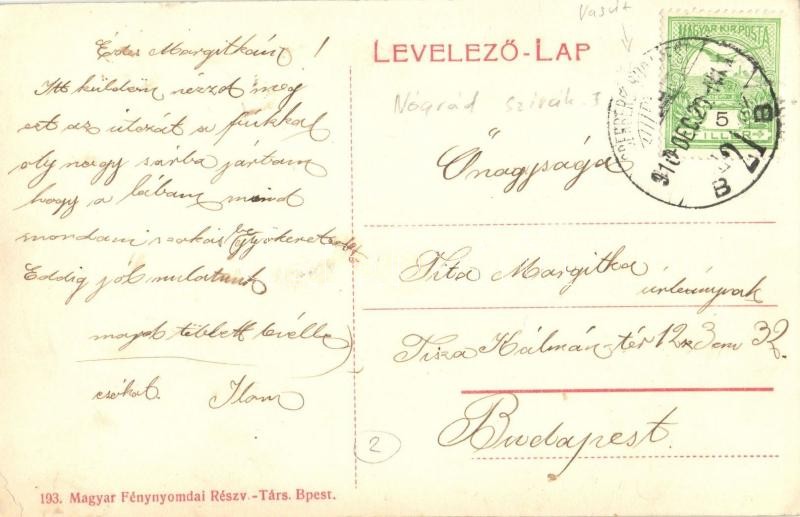 Vasút
LEVELEZŐ-LAP
MAGYAR KIR. POSTA
5
FILLÉR
910 DEC. 29
21 B
Nógrád szirák
Édes Margitkám!
Itt küldöm nézzd meg
ezt az utczát a fiúkkal
oly nagy sárba jártam
hogy a lábam mind
mondani szokás Gyökeret
Eddig jól mulatunk
majd többet
csókol. Ilon
Őnagysága
Tita Margitka
úrleánynak
Tisza Kálmán-tér 12 3 em 32.
Budapest.
2
193. Magyar Fénynyomdai Részv.-Társ. Bpest.